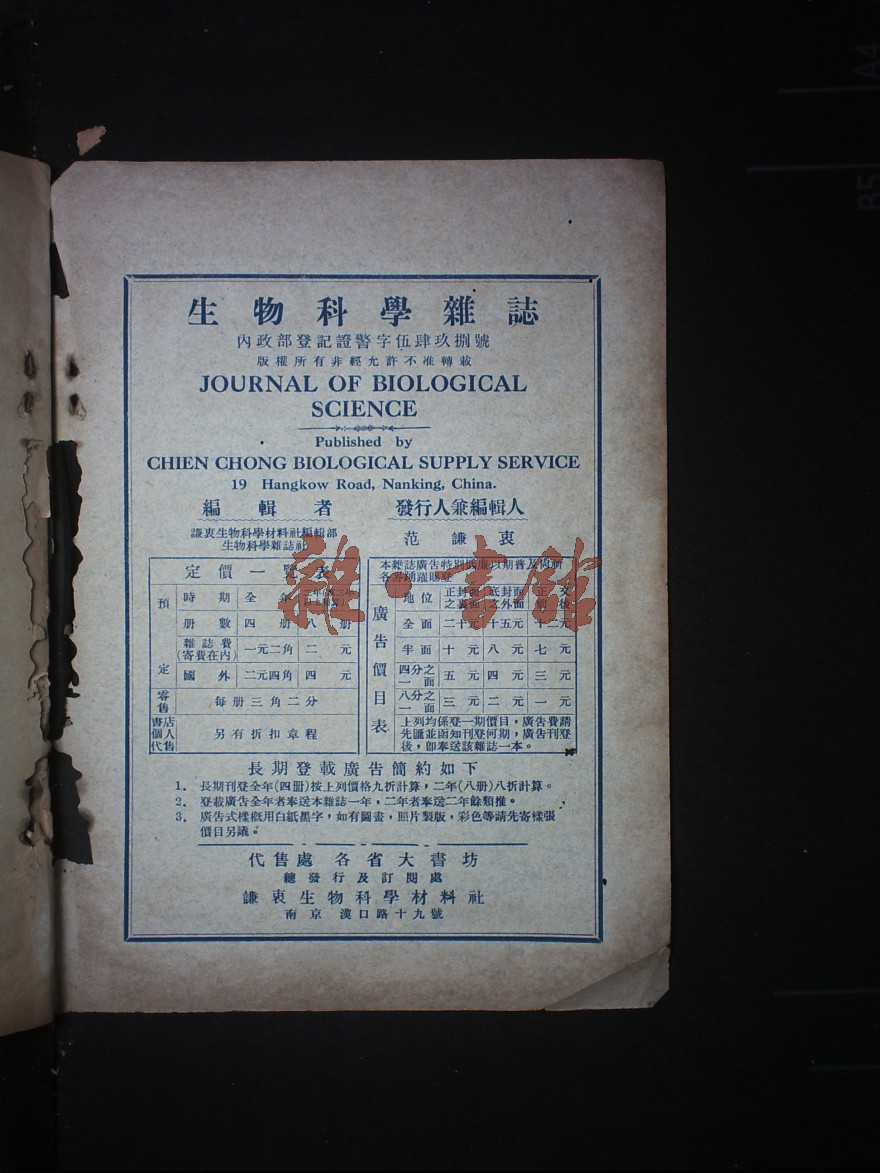 生物科學雜誌
內政部登記證警字伍肆玖捌號
版權所有非經允許不准轉載
JOURNAL OF BIOLOGICAL
SCIENCE
Published by
CHIEN CHONG BIOLOGICAL SUPPLY SERVICE
19 Hangkow Road, Nanking, China.
編輯者
謙衷生物科學材料社編輯部
生物科學雜誌社
發行人兼編輯人
范謙衷
定價一覽表
預定
時期 全年
册數 四册 八册
雜誌費(寄費在內) 一元二角 二元
國外 二元四角 四元
零售 每册三角二分
書店個人代售 另有折扣章程
本雜誌廣告特別低廉以期普及尚祈
各界踴躍賜登
廣告價目表
地位 正封面之裏面 底封面之外面 正文前後
全面 二十元 十五元 十二元
半面 十元 八元 七元
四分之一面 五元 四元 三元
八分之一面 三元 二元 一元
上列均係登一期價目，廣告費請
先滙並函知刊登何期，廣告刊登
後，卽奉送該雜誌一本。
長期登載廣告簡約如下
1. 長期刊登全年(四册)按上列價格九折計算，二年(八册)八折計算。
2. 登載廣告全年者奉送本雜誌一年，二年者奉送二年餘類推。
3. 廣告式樣概用白紙黑字，如有圖畫，照片製版，彩色等請先寄樣張
價目另議。
代售處 各省大書坊
總發行及訂閱處
謙衷生物科學材料社
南京 漢口路十九號
A4
B5